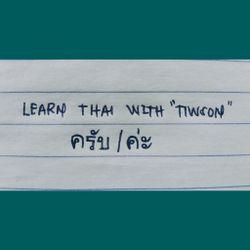 LEARN THAI WITH "TIWSON"
ครับ / ค่ะ